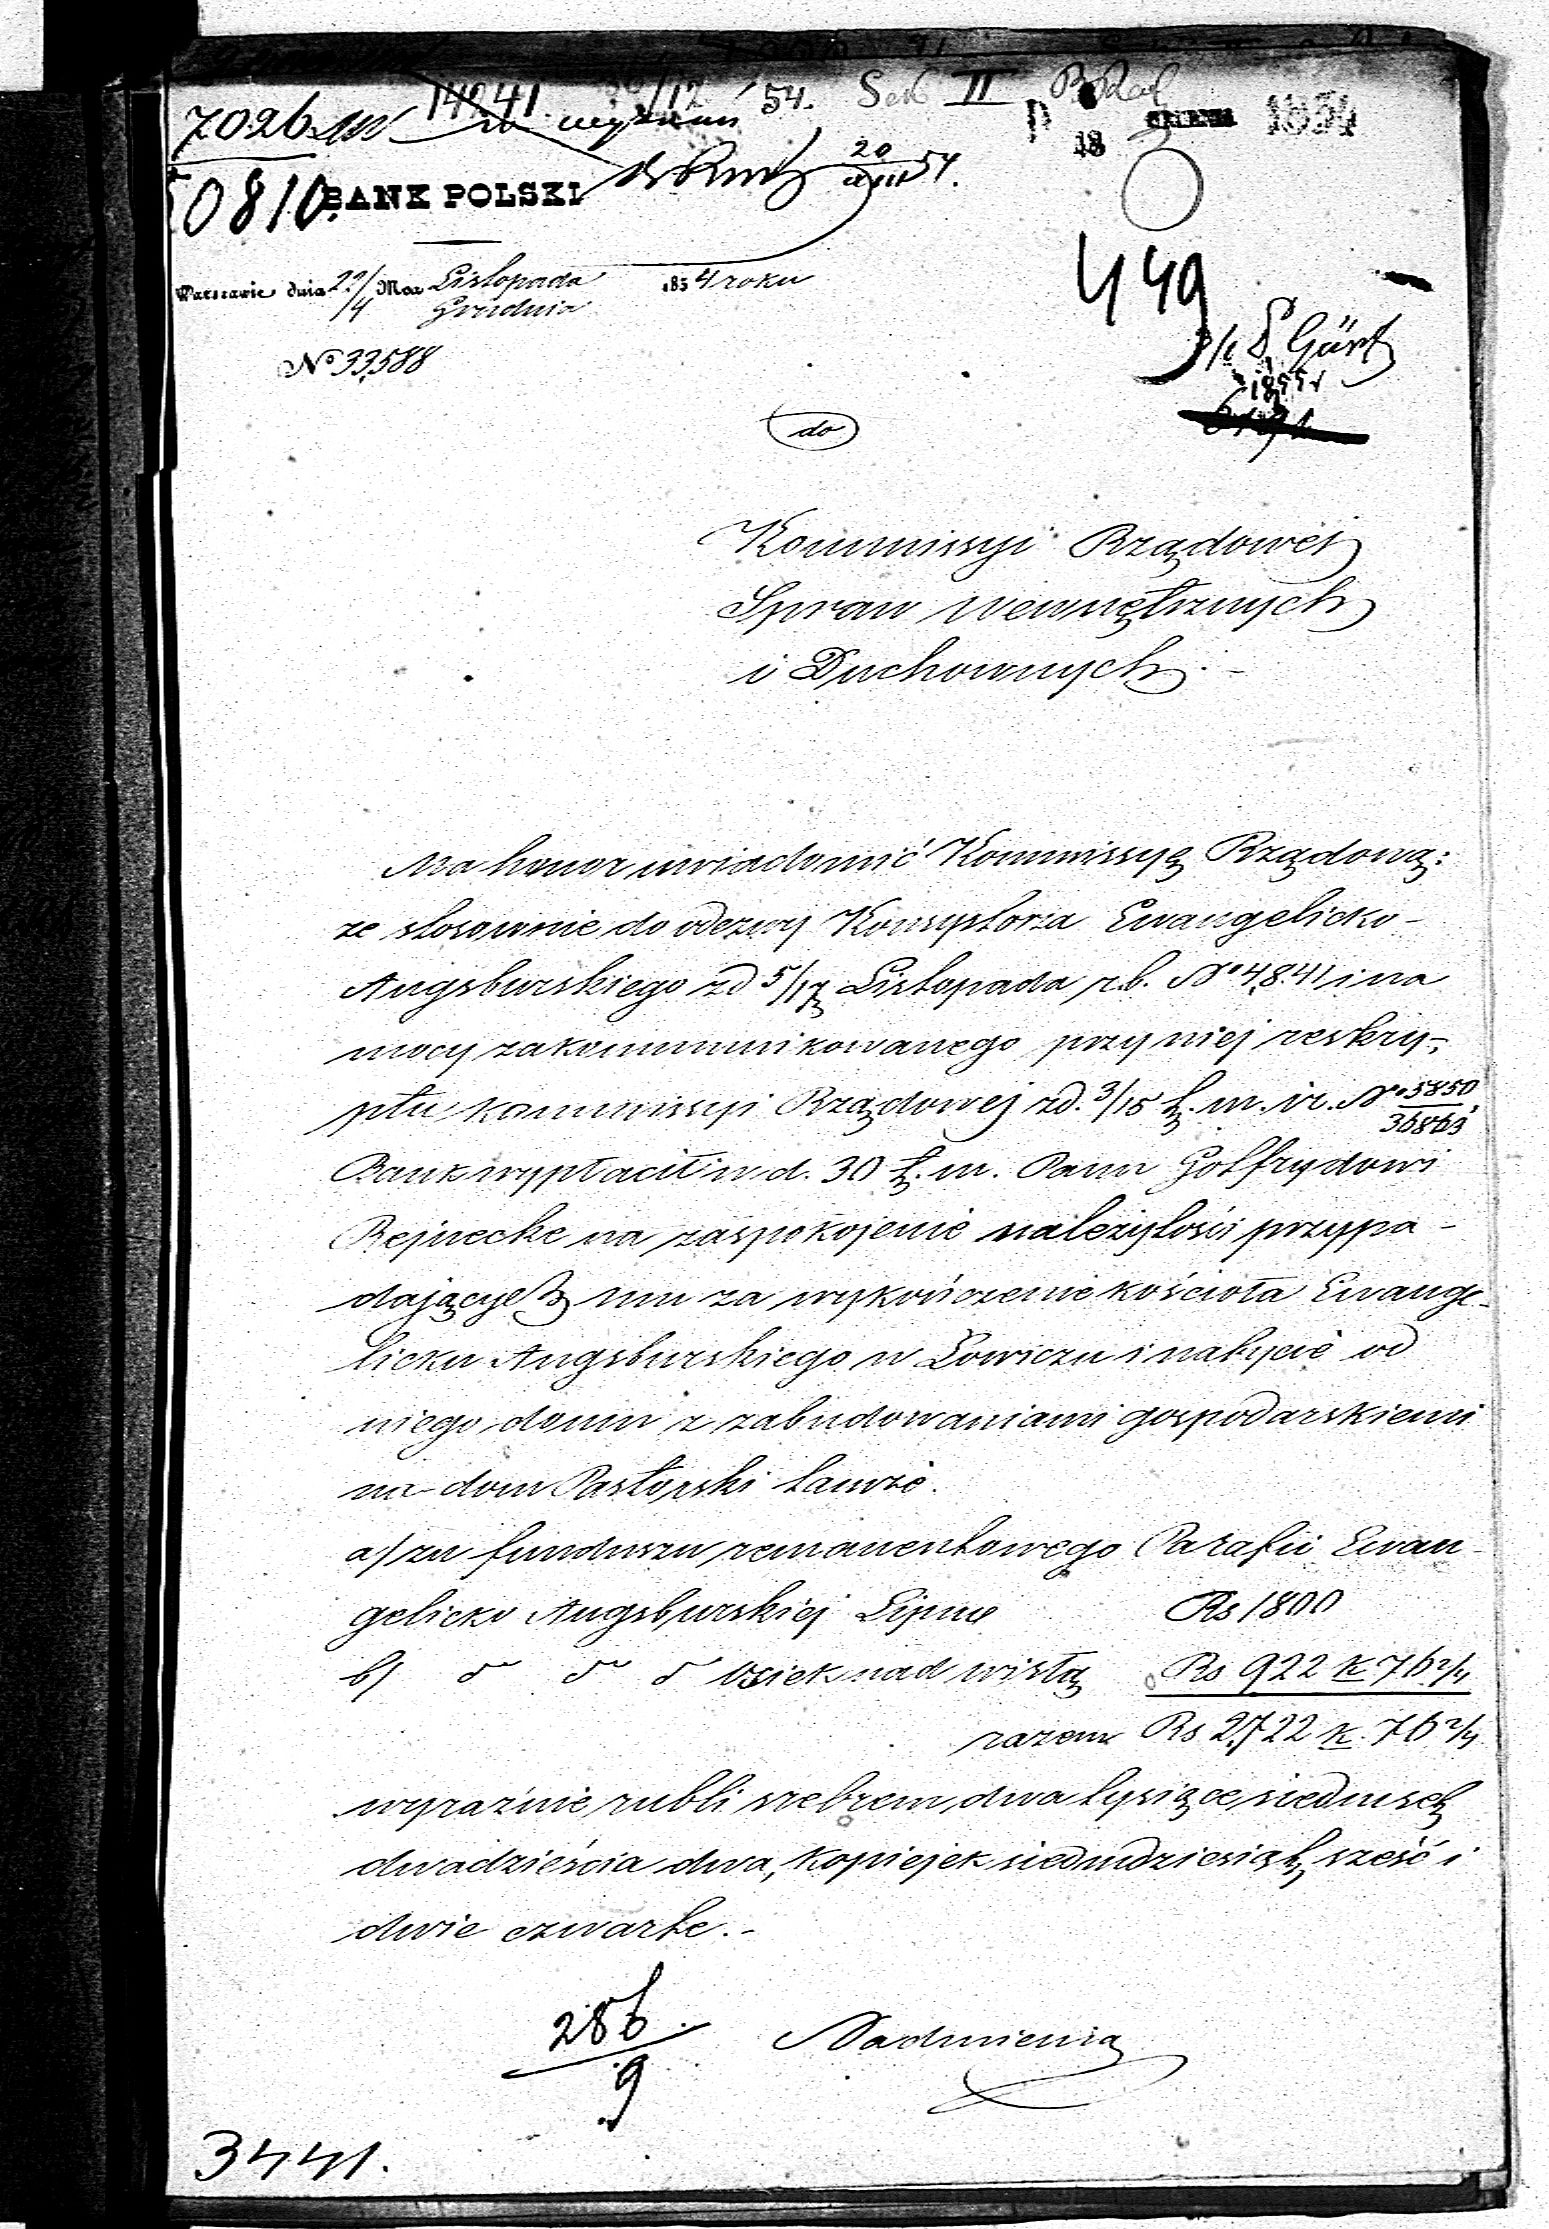 14041 30/12 54. Sek II
7026
20/XII 54.
50810
BANK POLSKI
Warszawie dnia 22/4 Mca Listopada/Grudnia 1854 roku
449
No 33,588
1855 r
do
Kommissyi Rządowéj
Spraw Wewnętrznych
i Duchownych.-
Ma honor uwiadomić Kommissyą Rządową:
że stosownie do odezwy Konsystorza Ewangelicko-
Augsburskiego z d 5/17 Listopada r.b. No 4,841 i na
mocy zakommunikowanego przy niej reskry-
ptu Kommissyi Rządowej z d. 3/15 t. m. i r. No 5850/36863,
Bank wypłacił w d. 30 t. m. Panu Gotfrydowi
Rejnecke na zaspokojenie należytości przypa-
dających mu za wykończenie kościoła Ewange-
licko Augsburskiego w Łowiczu i nabycie od
niego domu z zabudowaniami gospodarskiemi
na dom Pastorski tamże.
a/ zu funduszu remanentowego Parafii Ewan-
gelicko Augsburskiej Lipno Rs 1800
b/ d d d Osiek nad wisłą Rs 922 k 76 2/4
razem Rs 2,722 k. 76 2/4
wyraźnie rubli srebrem, dwa tysiące siedmset
dwadzieścia dwa, Kopiejek siedmdziesiąt sześć i
dwie czwarte.-
286/9
Nadmienia
3441.